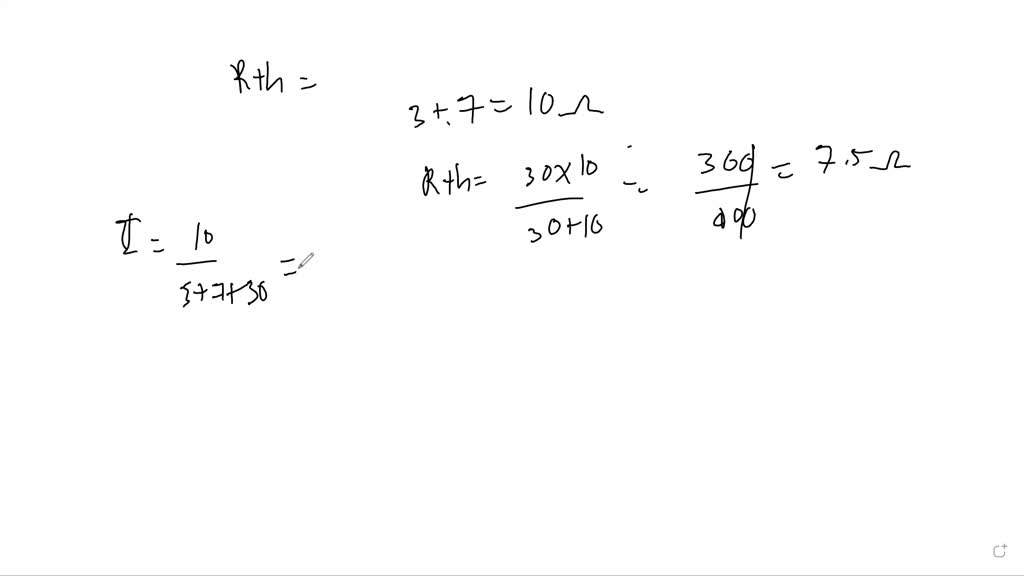 Rth =
3+7 = 10Ω
Rth = 30×10/30+10 = 300/400 = 7.5Ω
I = 10/3+7+30 =